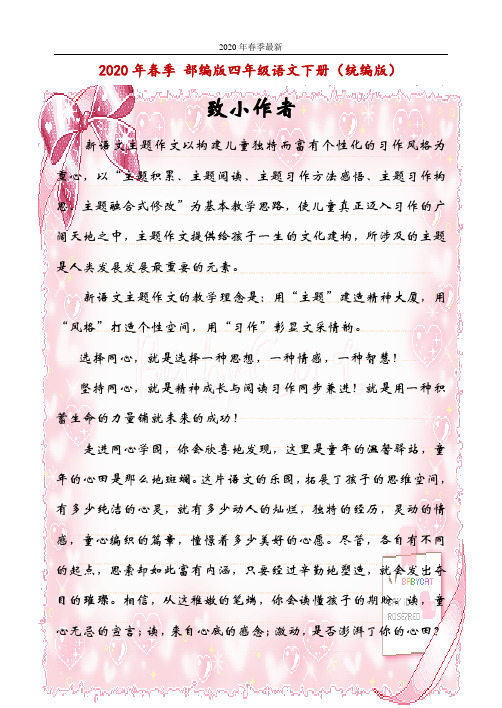 2020年春季最新
2020年春季 部编版四年级语文下册（统编版）
致小作者
新语文主题作文以构建儿童独特而富有个性化的习作风格为
重心，以“主题积累、主题阅读、主题习作方法感悟、主题习作构
思、主题融合式修改”为基本教学思路，使儿童真正迈入习作的广
阔天地之中，主题作文提供给孩子一生的文化建构，所涉及的主题
是人类发展发展最重要的元素。
新语文主题作文的教学理念是：用“主题”建造精神大厦，用
“风格”打造个性空间，用“习作”彰显文采情韵。
选择同心，就是选择一种思想，一种情感，一种智慧！
坚持同心，就是精神成长与阅读习作同步兼进！就是用一种积
蓄生命的力量铺就未来的成功！
走进同心学园，你会欣喜地发现，这里是童年的温馨驿站，童
年的心田是那么地斑斓。这片语文的乐园，拓展了孩子的思维空间，
有多少纯洁的心灵，就有多少动人的灿烂，独特的经历，灵动的情
感，童心编织的篇章，憧憬着多少美好的心愿。尽管，各自有不同
的起点，思索却如此富有内涵，只要经过辛勤地塑造，就会发出夺
目的璀璨。相信，从这稚嫩的笔端，你会读懂孩子的期盼。读，童
心无忌的宣言；读，来自心底的感念；激动，是否澎湃了你的心田？
BABYCAT
ROSE?RED